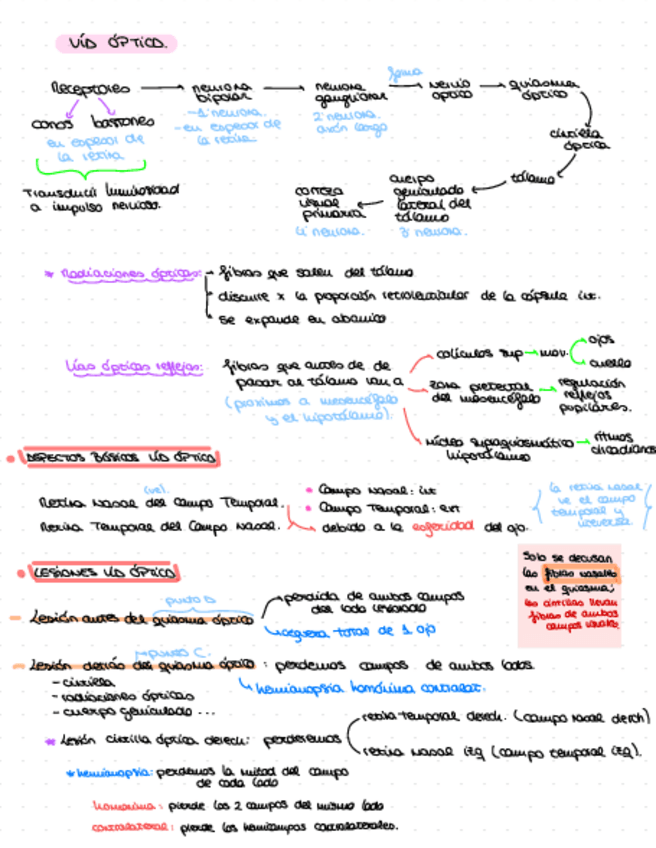 VÍA ÓPTICA.
Receptores → neurona bipolar → neurona ganglionar → forma nervio óptico → quiasma óptico
conos bastones
en espesor de la retina
Transducir luminosidad a impulso nervioso.
-1ª neurona.
-en espesor de la retina.
2ª neurona.
axón largo
cintilla óptica
tálamo
cuerpo geniculado lateral del tálamo
3ª neurona.
corteza visual primaria
4ª neurona.
* Radiaciones ópticas: - fibras que salen del tálamo
- discurre x la proporción retrolenticular de la cápsula int.
- se expande en abanico
Vías ópticas reflejas: fibras que antes de de pasar al tálamo van a
(próximos a mesencéfalo y el hipotálamo).
colículos sup → mov. ojos
cuello
zona pretectal del mesencéfalo → regulación reflejos pupilares.
núcleo supraquiasmático hipotálamo → ritmos circadianos
• ASPECTOS BÁSICOS VÍA ÓPTICA
(ve)
Retina Nasal del Campo Temporal.
Retina Temporal del Campo Nasal.
• Campo Nasal: int
• Campo Temporal: ext
debido a la esfericidad del ojo.
(la retina nasal ve el campo temporal y inversa)
• LESIONES VÍA ÓPTICA
Solo se decusan las fibras nasales en el quiasma;
las cintillas llevan fibras de ambos campos visuales.
punto B
- Lesión antes del quiasma óptico
pérdida de ambos campos del lado lesionado
ceguera total de 1 ojo
punto C.
- Lesión detrás del quiasma óptico: perdemos campos de ambos lados.
- cintilla
- radiaciones ópticas
- cuerpo geniculado...
hemianopsia homónima contralat.
* Lesión cintilla óptica derech: perderemos
retina temporal derech. (campo nasal derch)
retina nasal izq (campo temporal izq).
* hemianopsia: perdemos la mitad del campo de cada lado
homónima: pierde los 2 campos del mismo lado
contralateral: pierde los hemicampos contralaterales.